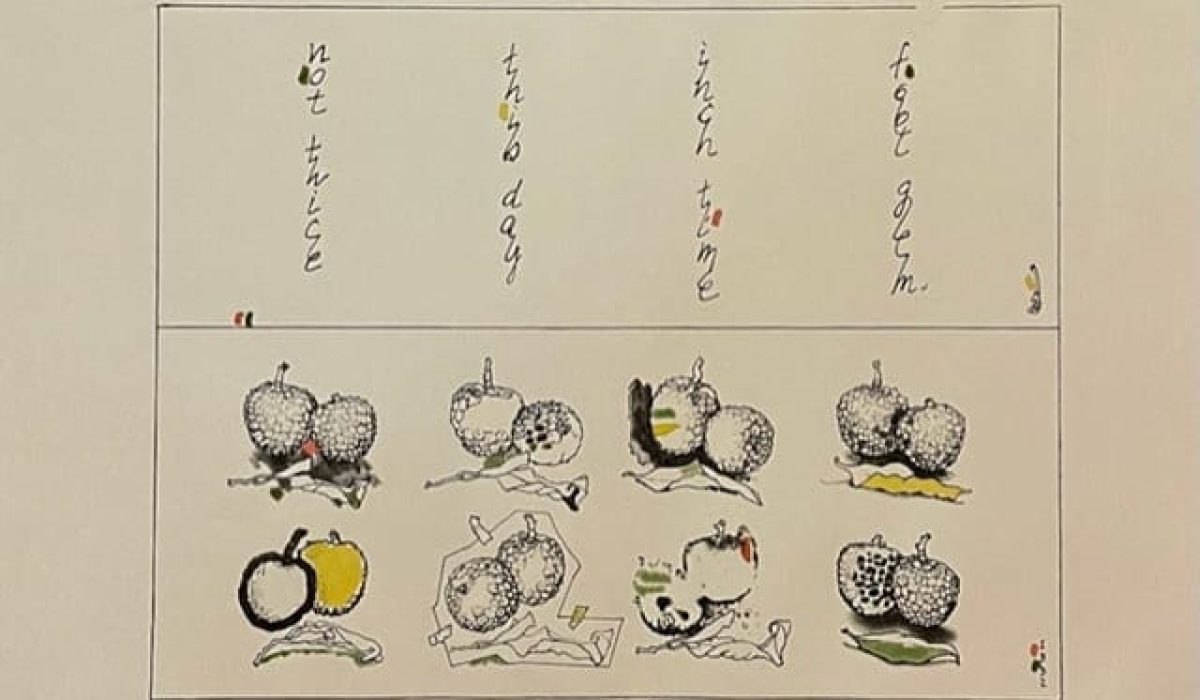 not twice
this day
inch time
foot gem.